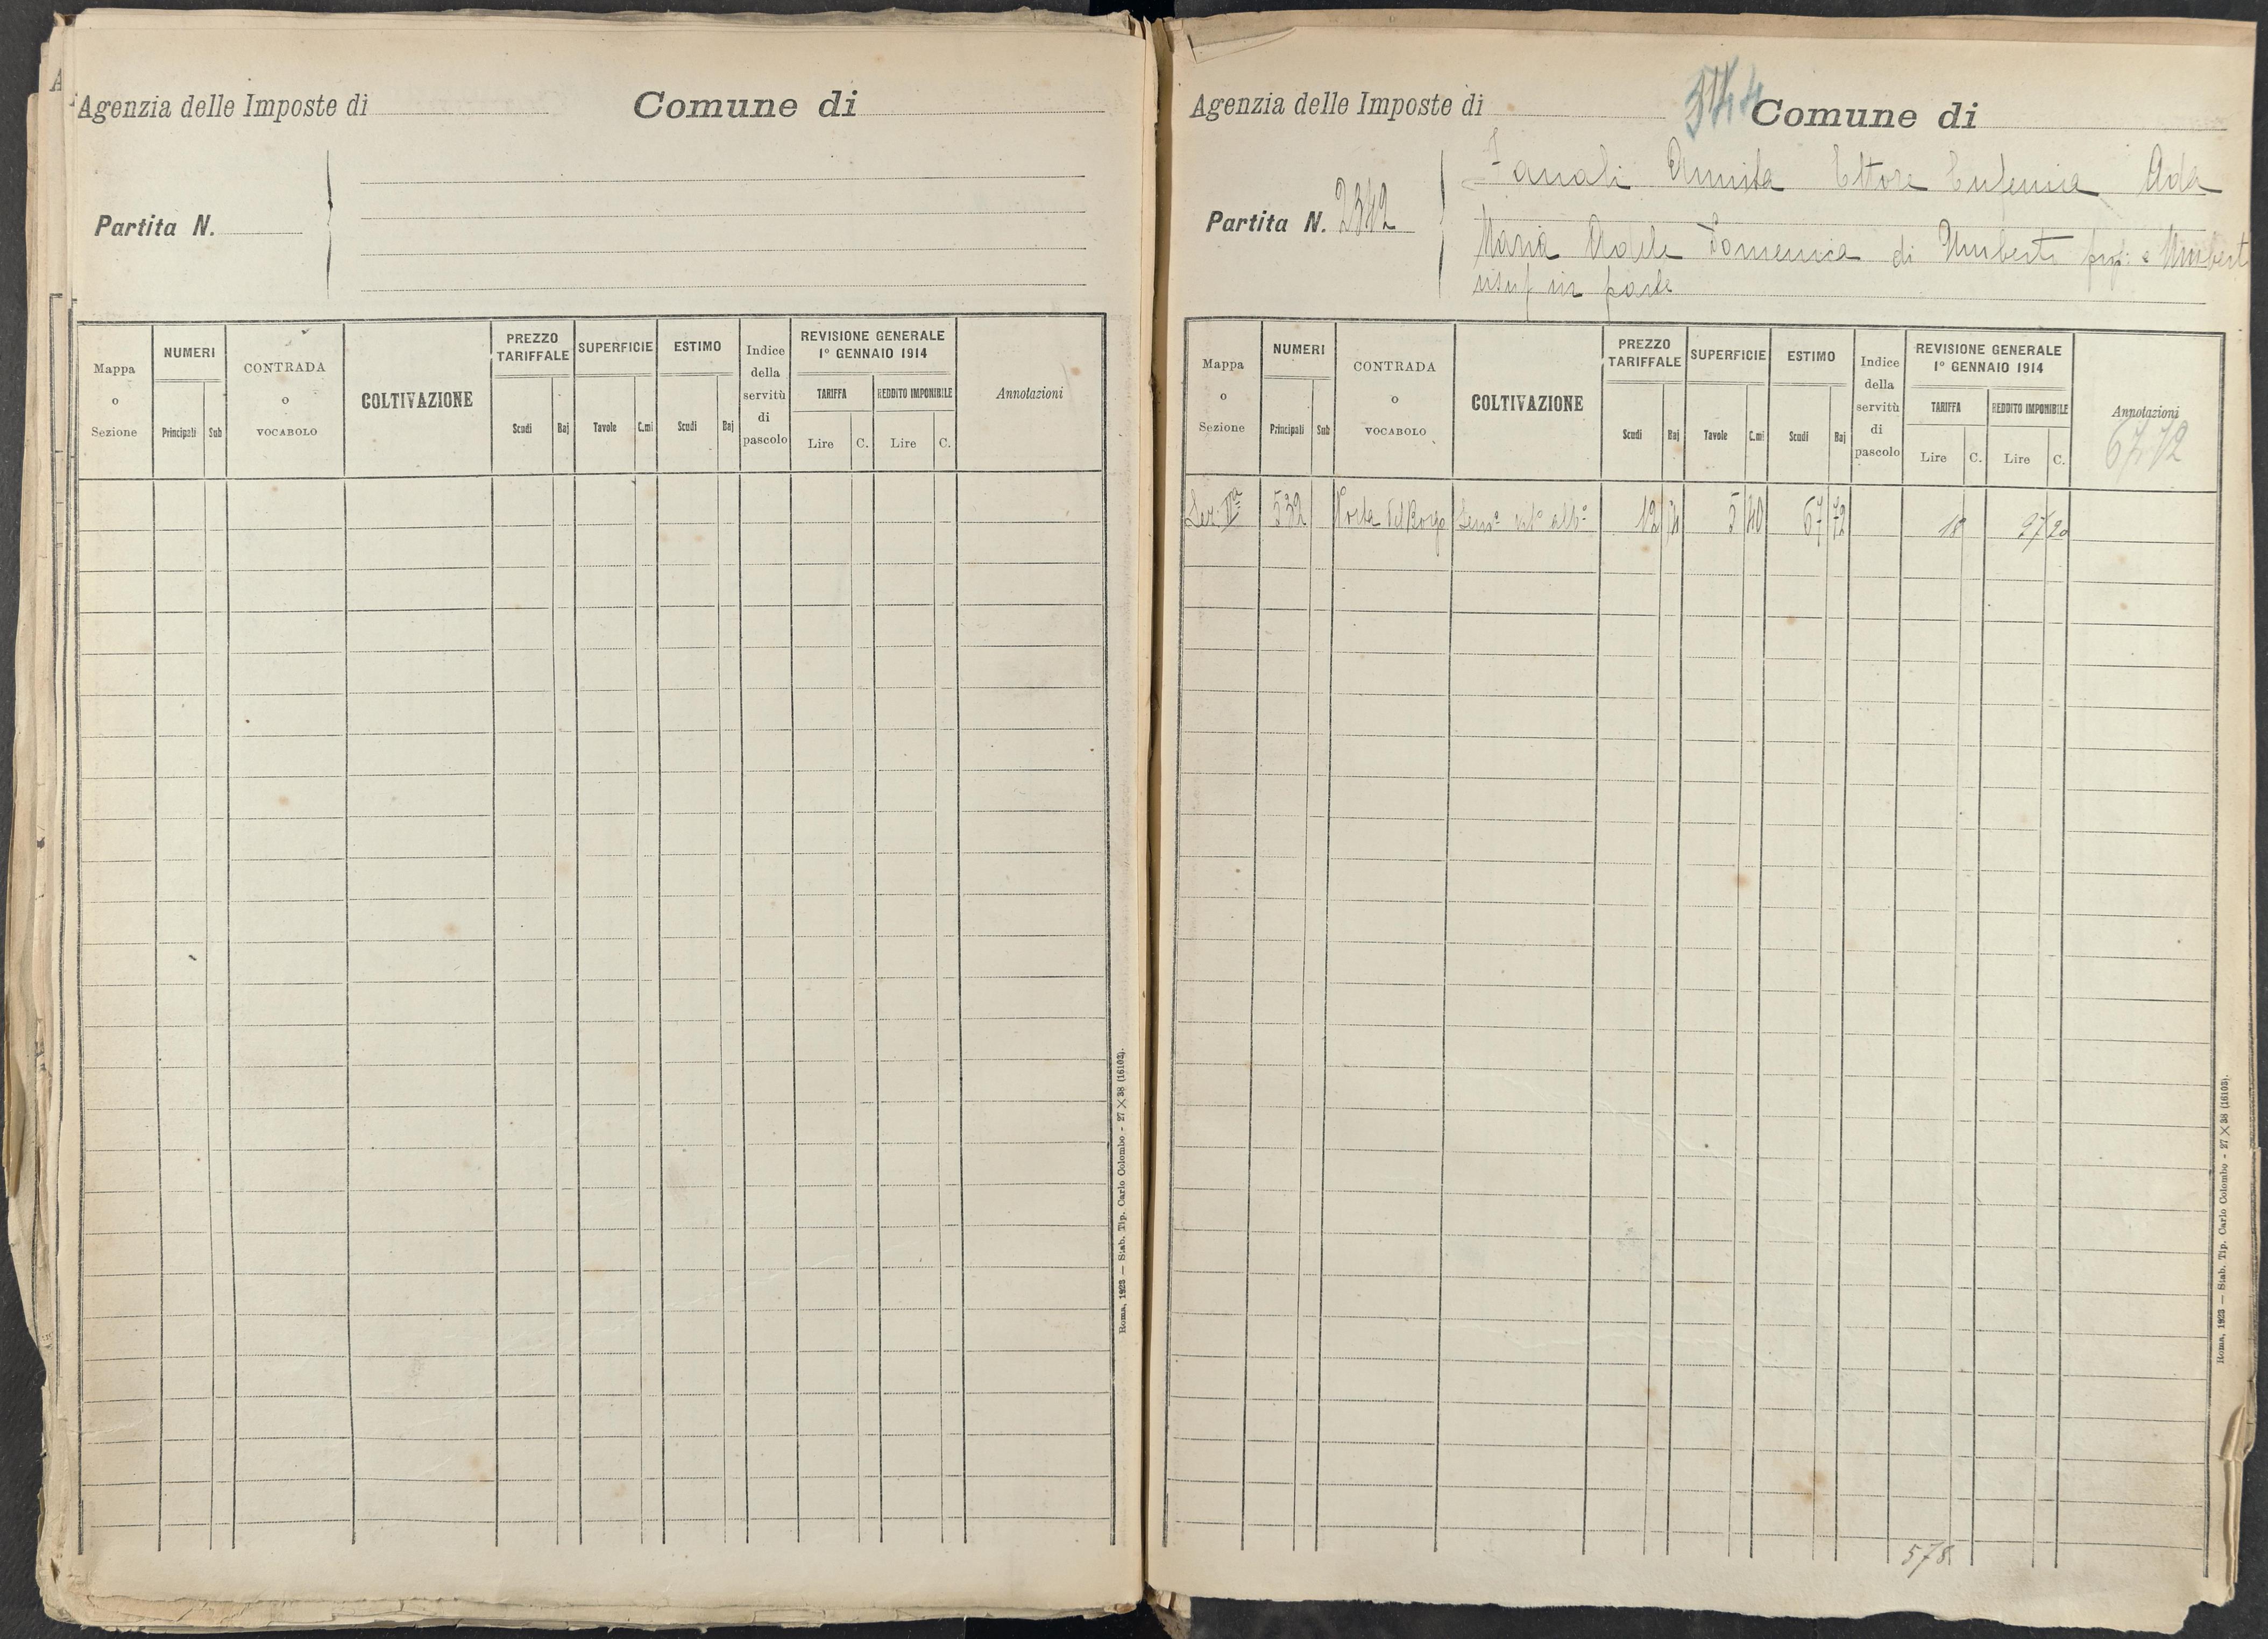 Agenzia delle Imposte di
Comune di
Partita N.
Mappa o Sezione
NUMERI
Principali
Sub
CONTRADA o VOCABOLO
COLTIVAZIONE
PREZZO TARIFFALE
Scudi
Baj
SUPERFICIE
Tavole
C.mi
ESTIMO
Scudi
Baj
Indice della servitù di pascolo
REVISIONE GENERALE
1° GENNAIO 1914
TARIFFA
Lire
C.
REDDITO IMPONIBILE
Lire
C.
Annotazioni
Roma, 1923 — Stab. Tip. Carlo Colombo - 27 X 38 (16103).
Agenzia delle Imposte di
Comune di
Partita N. 2342
Ettore Eufemia Ada
Maria Adele Domenica di Umberto prop: e Umberto
usuf in parte
Mappa o Sezione
NUMERI
Principali
Sub
CONTRADA o VOCABOLO
COLTIVAZIONE
PREZZO TARIFFALE
Scudi
Baj
SUPERFICIE
Tavole
C.mi
ESTIMO
Scudi
Baj
Indice della servitù di pascolo
REVISIONE GENERALE
1° GENNAIO 1914
TARIFFA
Lire
C.
REDDITO IMPONIBILE
Lire
C.
Annotazioni
67,72
Sez. IIa 532 Porta del Borgo 12 5 40 67 72 18 97 20
578
Roma, 1923 — Stab. Tip. Carlo Colombo - 27 X 38 (16103).